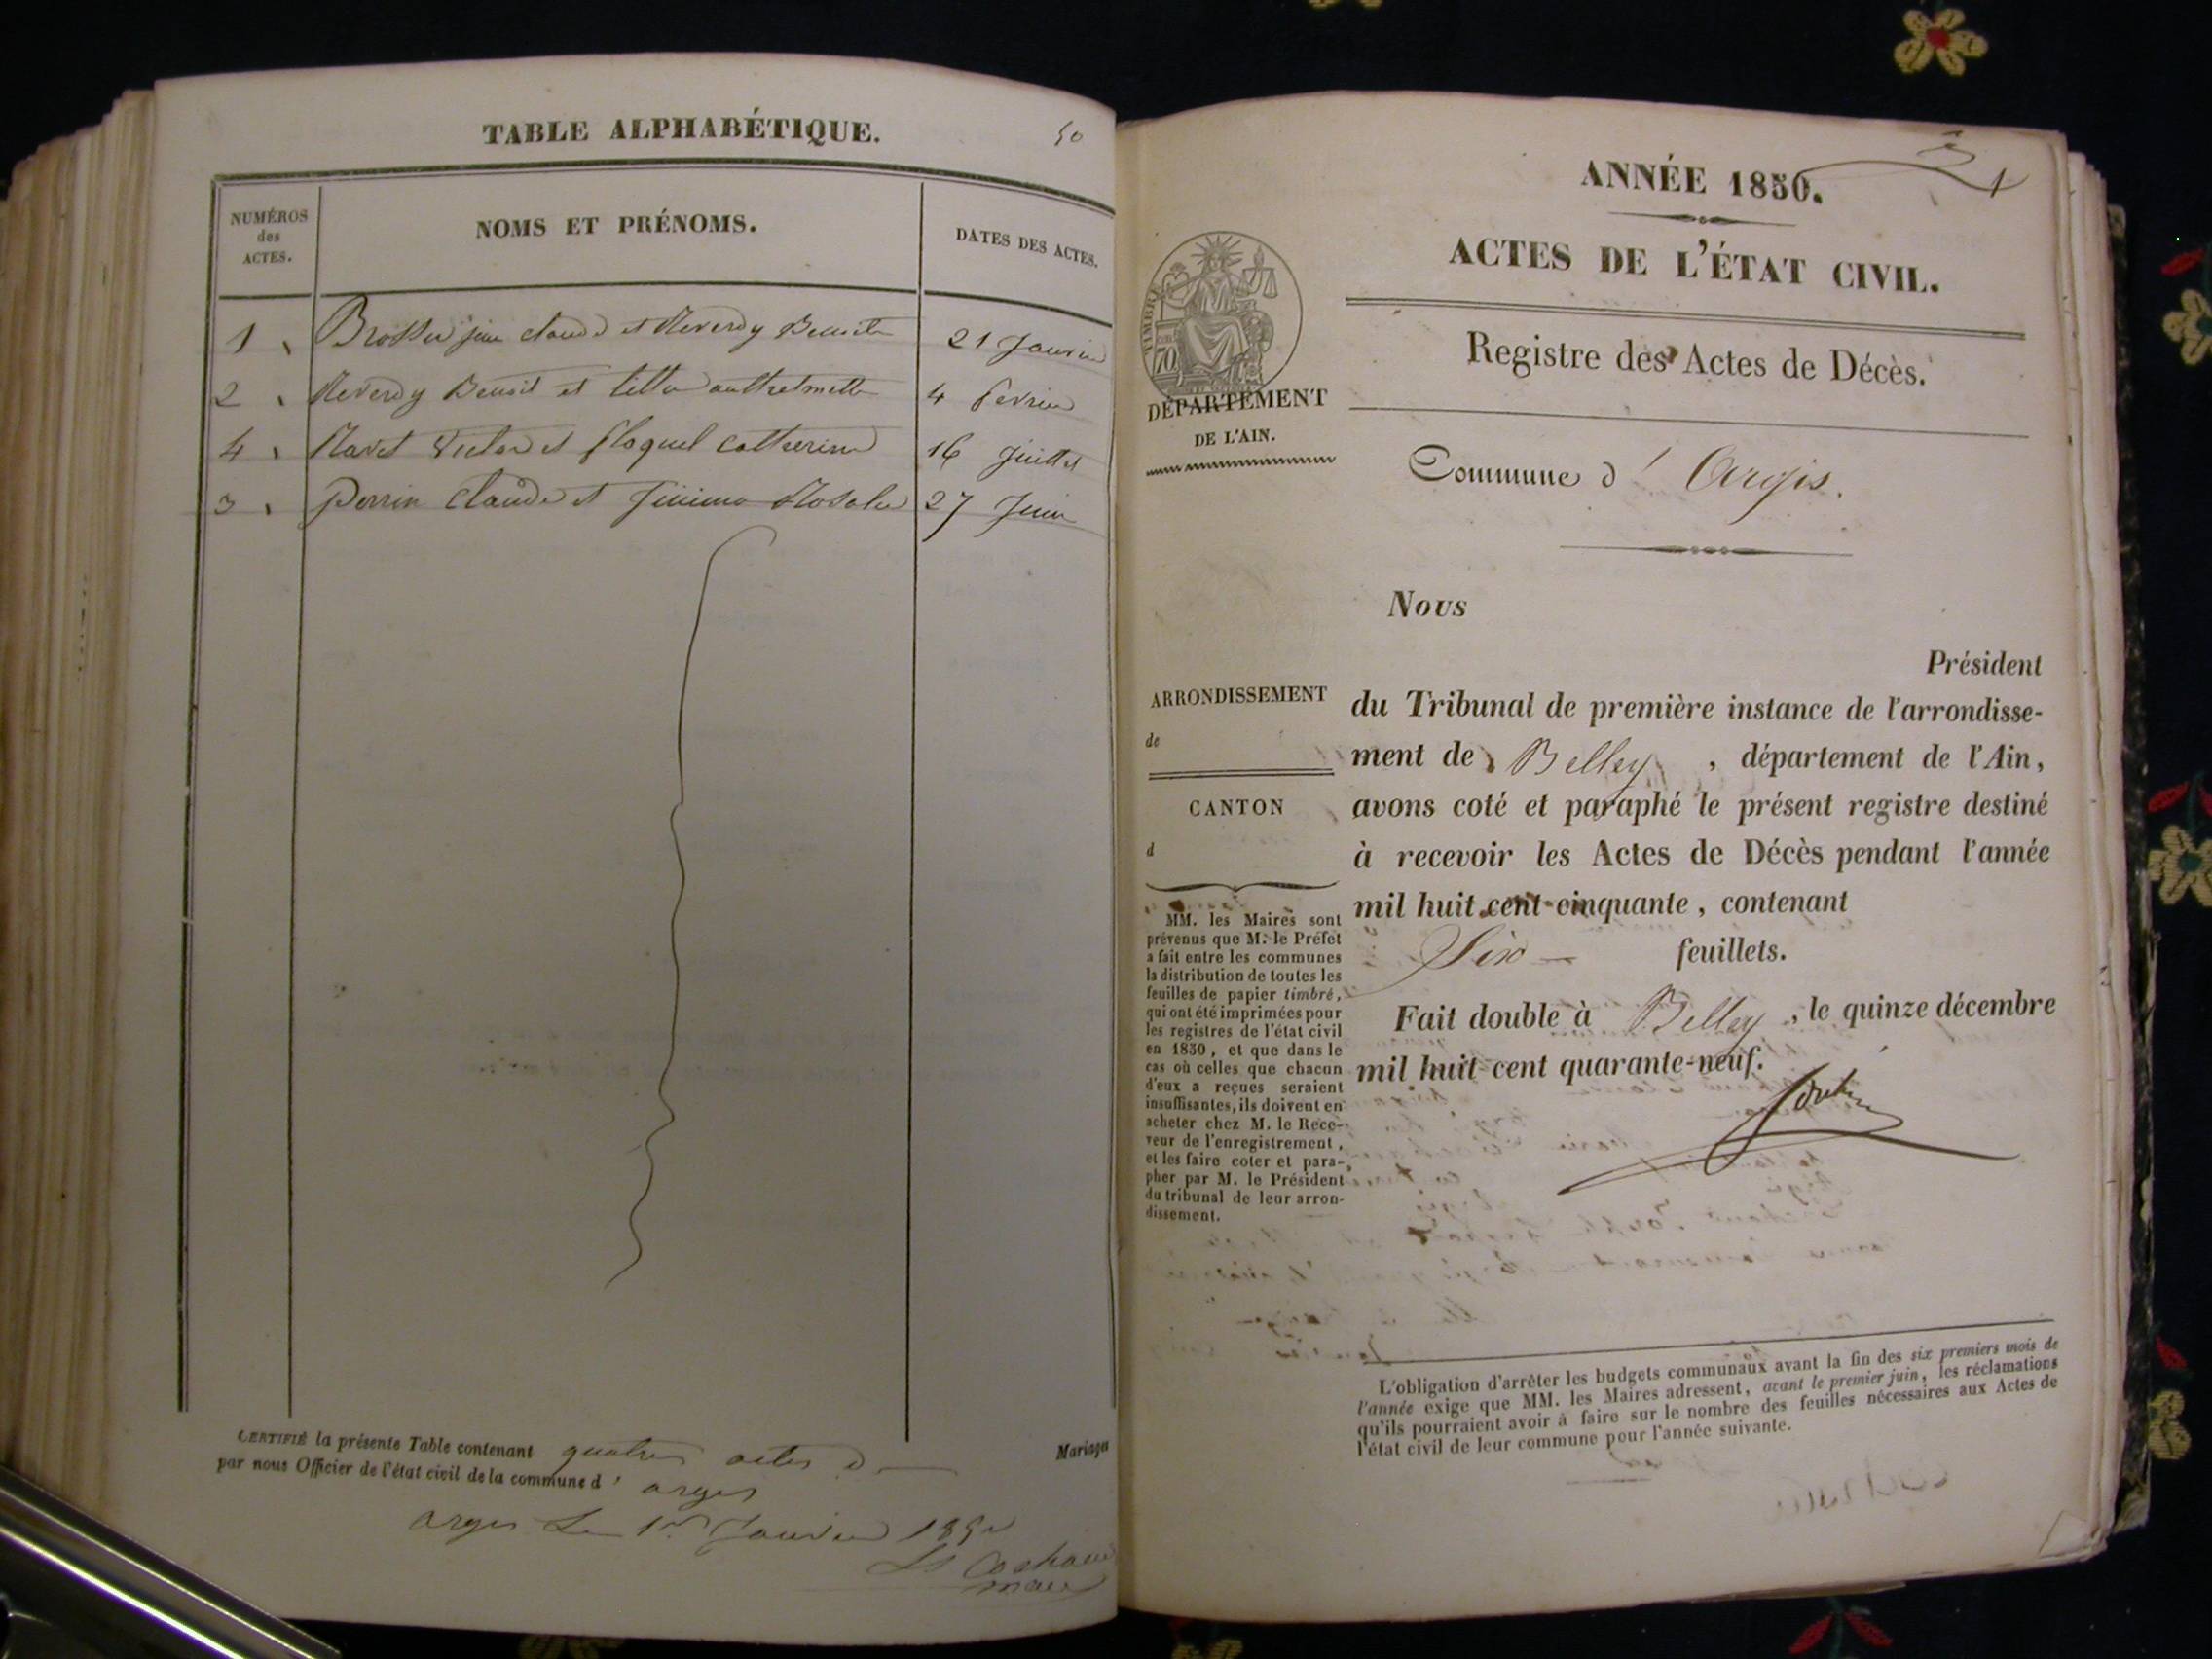 TABLE ALPHABÉTIQUE.
50
NUMÉROS
des
ACTES.
NOMS ET PRÉNOMS.
DATES DES ACTES.
1 jean claude et Reverdy Benoite 21 Janvier
2 Reverdy Benoit et 4 fevrier
4 Navet Victor et floquet catherine 16 Juillet
3 perrin Claude et 27 Juin
CERTIFIÉ la présente Table contenant quatre actes d Mariages
par nous Officier de l'état civil de la commune d' arges
arges Le 1er Janvier 185
maire
1
ANNÉE 1850.
ACTES DE L'ÉTAT CIVIL.
Registre des Actes de Décès.
TIMBRE
70
DÉPARTEMENT
DE L'AIN.
Commune d' Argis.
Nous
Président
du Tribunal de première instance de l'arrondisse-
ment de Belley , département de l'Ain,
avons coté et paraphé le présent registre destiné
à recevoir les Actes de Décès pendant l'année
mil huit cent cinquante, contenant
Six feuillets.
Fait double à Belley, le quinze décembre
mil huit cent quarante-neuf.
ARRONDISSEMENT
de
CANTON
d
MM. les Maires sont
prévenus que M. le Préfet
a fait entre les communes
la distribution de toutes les
feuilles de papier timbré,
qui ont été imprimées pour
les registres de l'état civil
en 1850, et que dans le
cas où celles que chacun
d'eux a reçues seraient
insuffisantes, ils doivent en
acheter chez M. le Rece-
veur de l'enregistrement,
et les faire coter et para-
pher par M. le Président
du tribunal de leur arron-
dissement.
L'obligation d'arrêter les budgets communaux avant la fin des six premiers mois de
l'année exige que MM. les Maires adressent, avant le premier juin, les réclamations
qu'ils pourraient avoir à faire sur le nombre des feuilles nécessaires aux Actes de
l'état civil de leur commune pour l'année suivante.